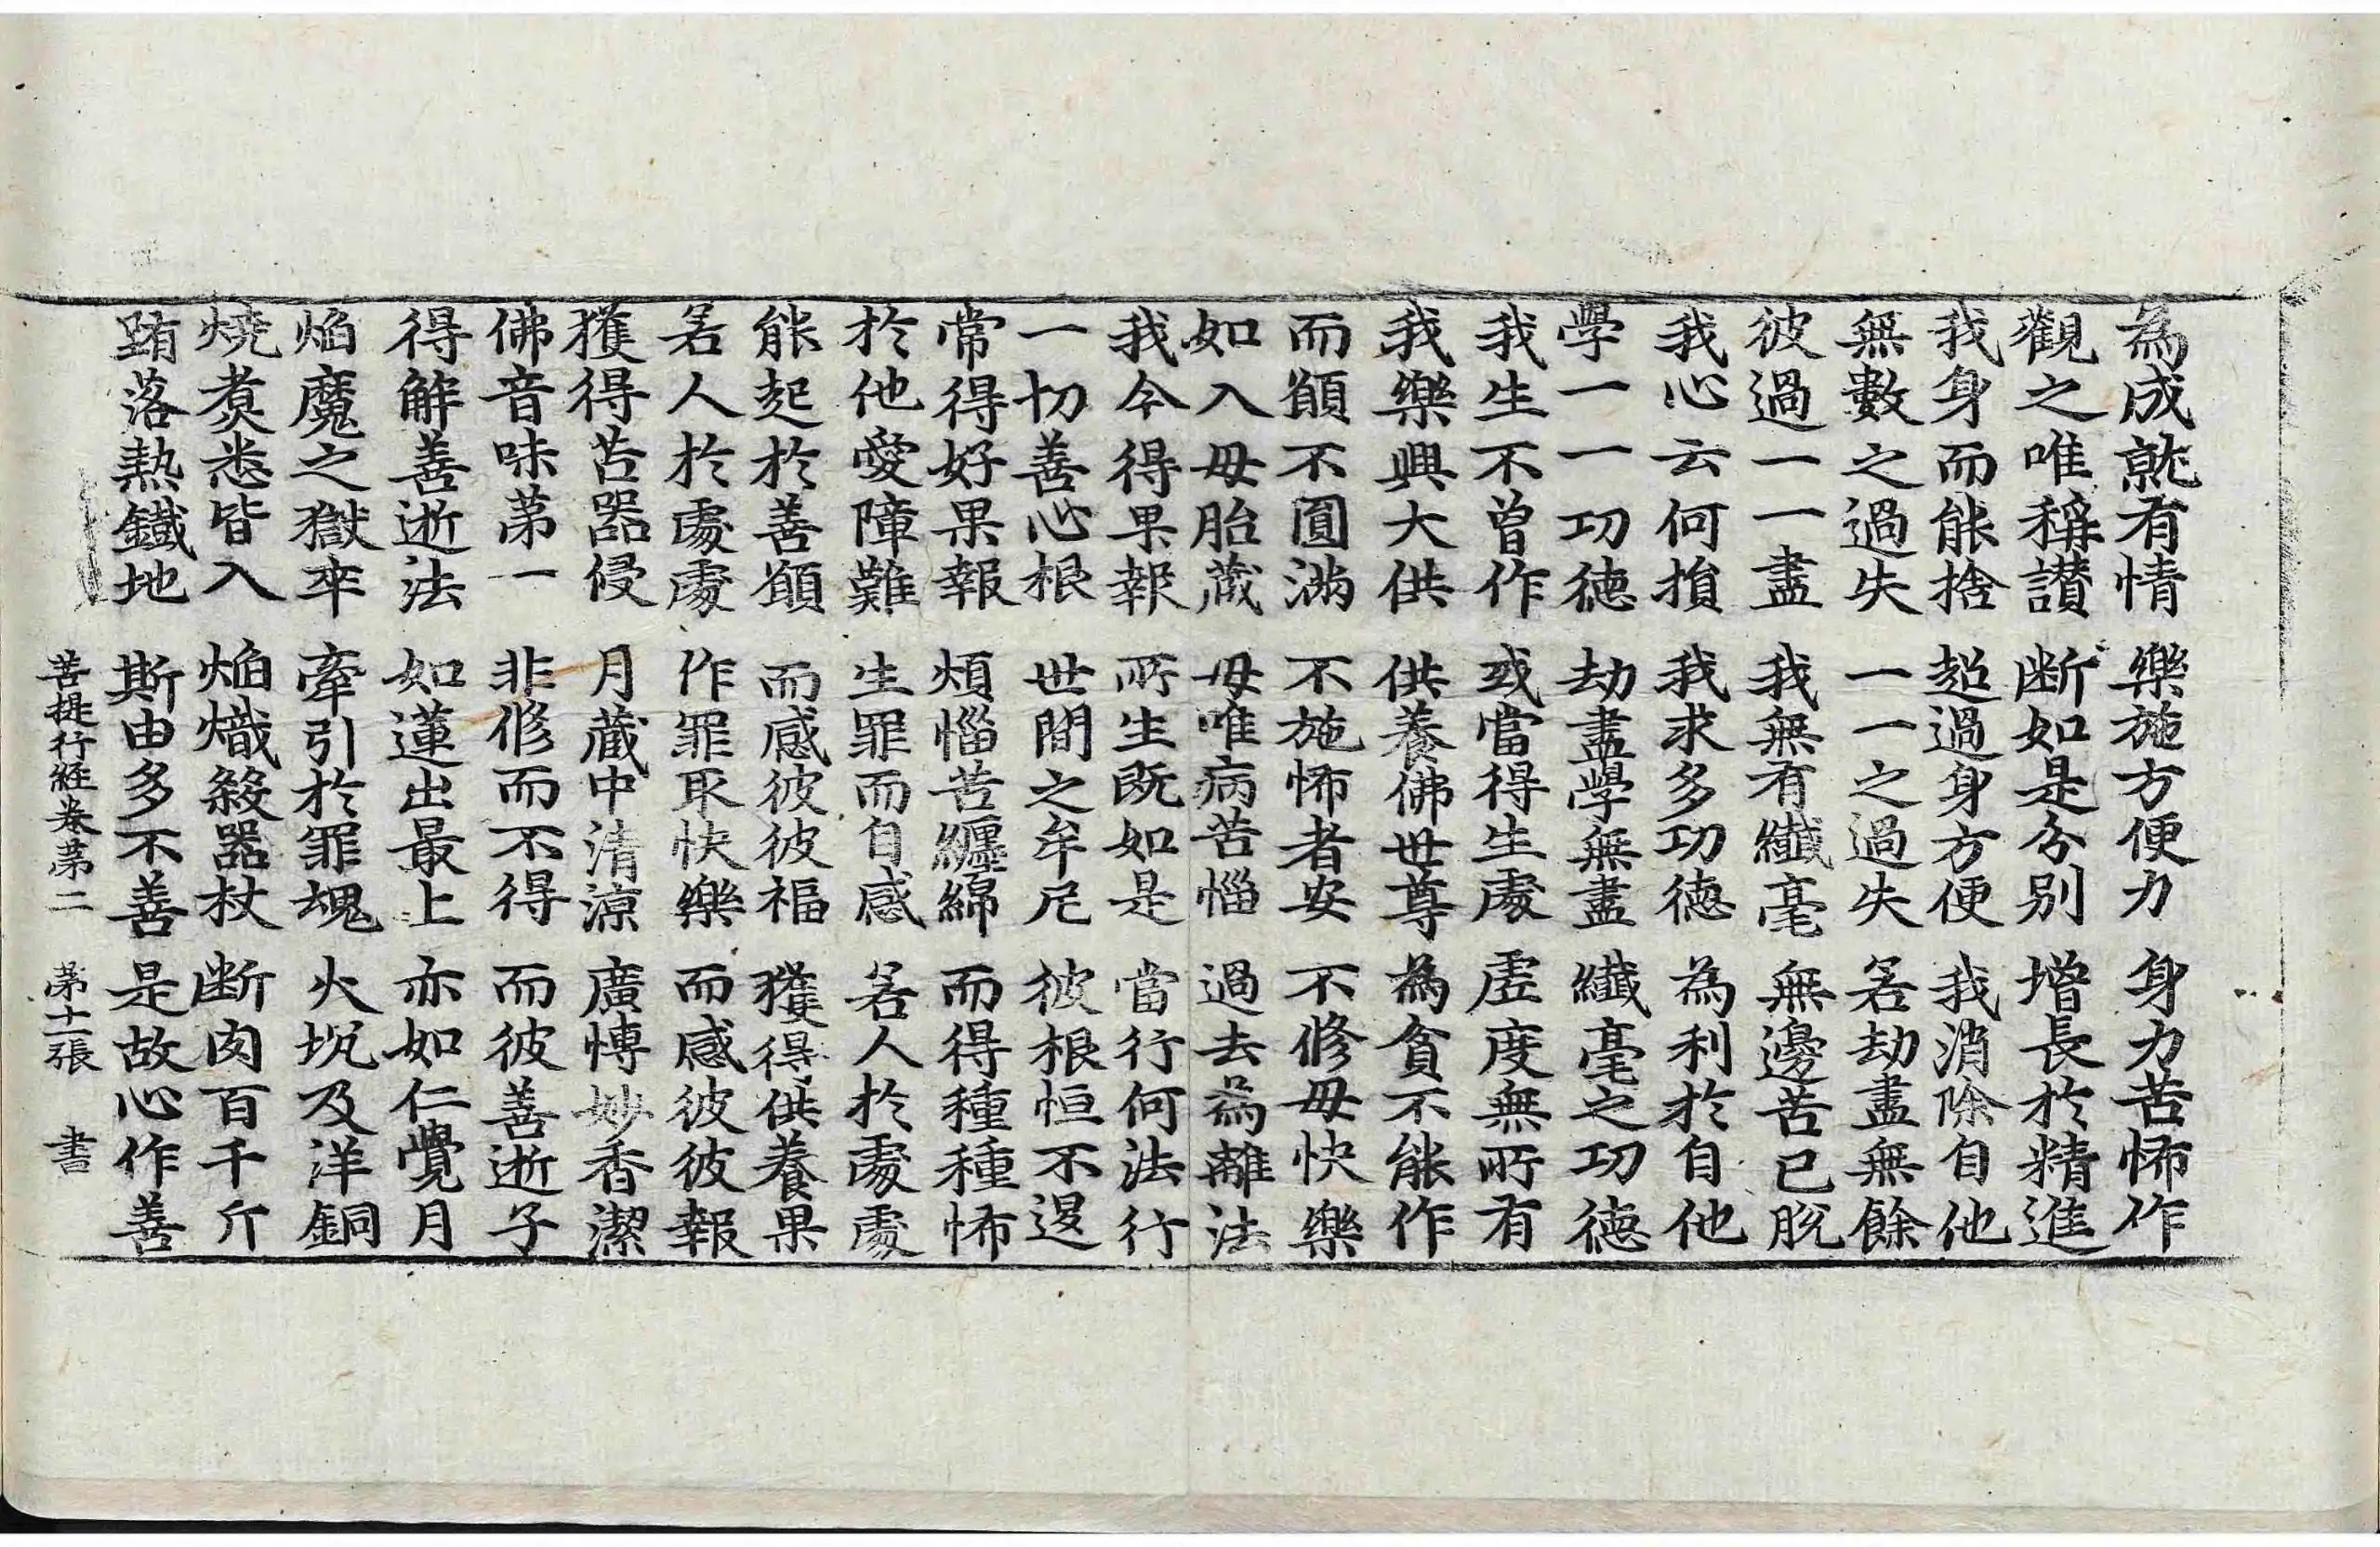 為成就有情　樂施方便力　身力苦怖作
觀之唯稱讃　断如是分别　增長於精進
我身而能捨　超過身方便　我消除自他
無數之過失　一一之過失　若劫盡無餘
彼過一一盡　我無有纖毫　無邊苦已脫
我心云何損　我求多功德　為利於自他
學一一功德　劫盡學無盡　纖毫之功德
我生不曾作　或當得生處　虛度無所有
我樂興大供　供養佛世尊　為貪不能作
而願不圓滿　不施怖者安　不修母快樂
如入母胎藏　母唯病苦惱　過去為離法
我今得果報　所生既如是　當行何法行
一切善心根　世間之牟尼　彼根恒不退
常得好果報　煩惱苦纏綿　而得種種怖
於他愛障難　生罪而自感　若人於處處
能起於善願　而感彼彼福　獲得供養果
若人於處處　作罪取快樂　而感彼彼報
獲得苦器侵　月藏中清涼　廣博妙香潔
佛音味苐一　非修而不得　而彼善逝子
得解善逝法　如蓮出最上　亦如仁覺月
焰魔之獄卒　牽引於罪魂　火坑及洋銅
燒煑悉皆入　焰熾殺器杖　断肉百千斤
踣落熱鐵地　斯由多不善　是故心作善
菩提行經卷苐二　苐十一張　書